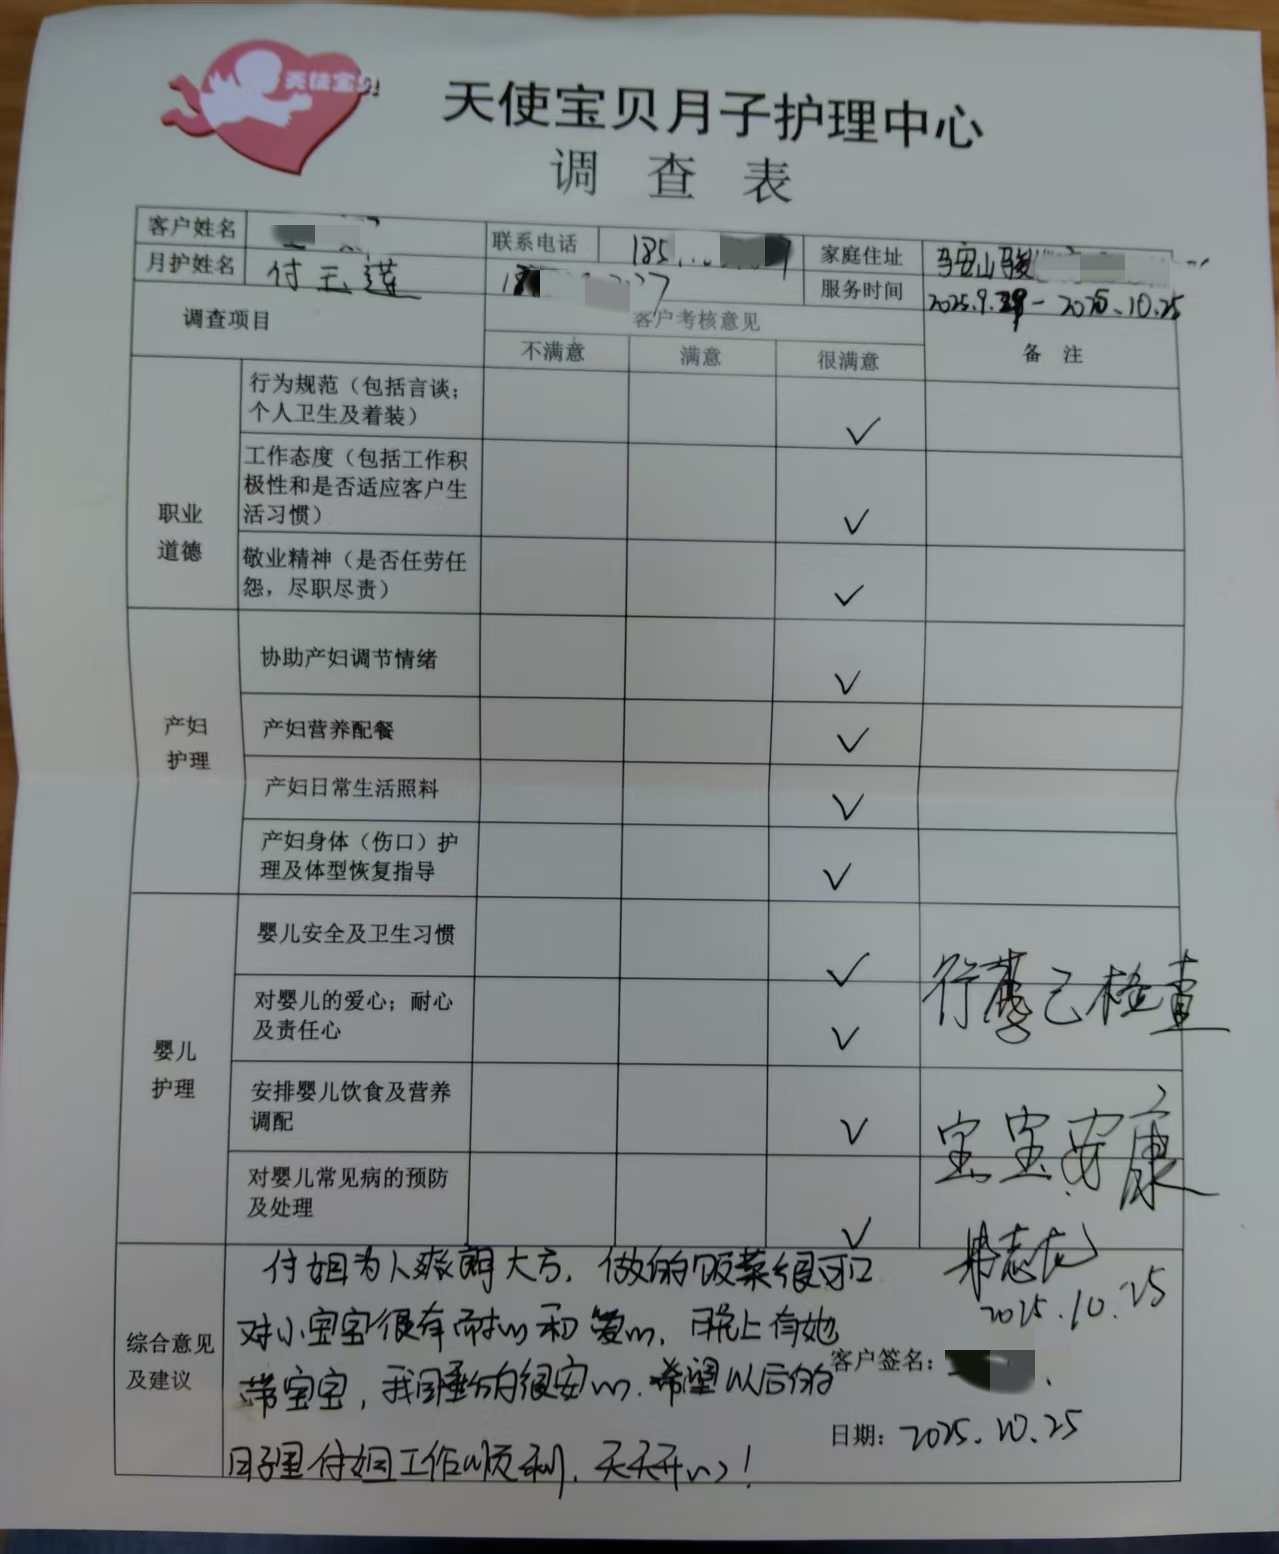 天使宝贝
天使宝贝月子护理中心
调查表
客户姓名 联系电话 185 家庭住址 马安山
月护姓名 付玉莲 服务时间 2025.9.29-2025.10.25
调查项目 客户考核意见 备注
不满意 满意 很满意
职业
道德
行为规范（包括言谈；
个人卫生及着装） ✓
工作态度（包括工作积
极性和是否适应客户生
活习惯） ✓
敬业精神（是否任劳任
怨，尽职尽责） ✓
产妇
护理
协助产妇调节情绪 ✓
产妇营养配餐 ✓
产妇日常生活照料 ✓
产妇身体（伤口）护
理及体型恢复指导 ✓
婴儿
护理
婴儿安全及卫生习惯 ✓
对婴儿的爱心；耐心
及责任心 ✓
安排婴儿饮食及营养
调配 ✓
对婴儿常见病的预防
及处理 ✓
行李已检查
宝宝安康
2025.10.25
综合意见
及建议
付姐为人爽朗大方，做的饭菜很可口
对小宝宝很有耐心和爱心，晚上有她
带宝宝，我睡的很安心。希望以后的
日子里付姐工作顺利，天天开心！
客户签名：
日期：2025.10.25